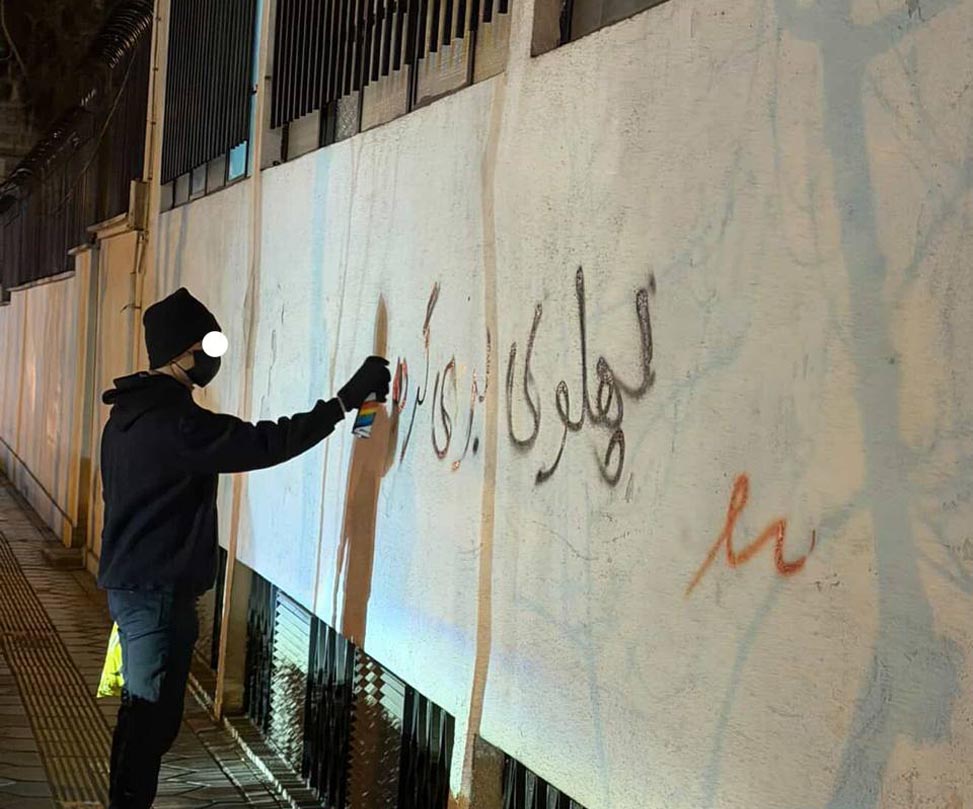 پهلوی برمی گرده